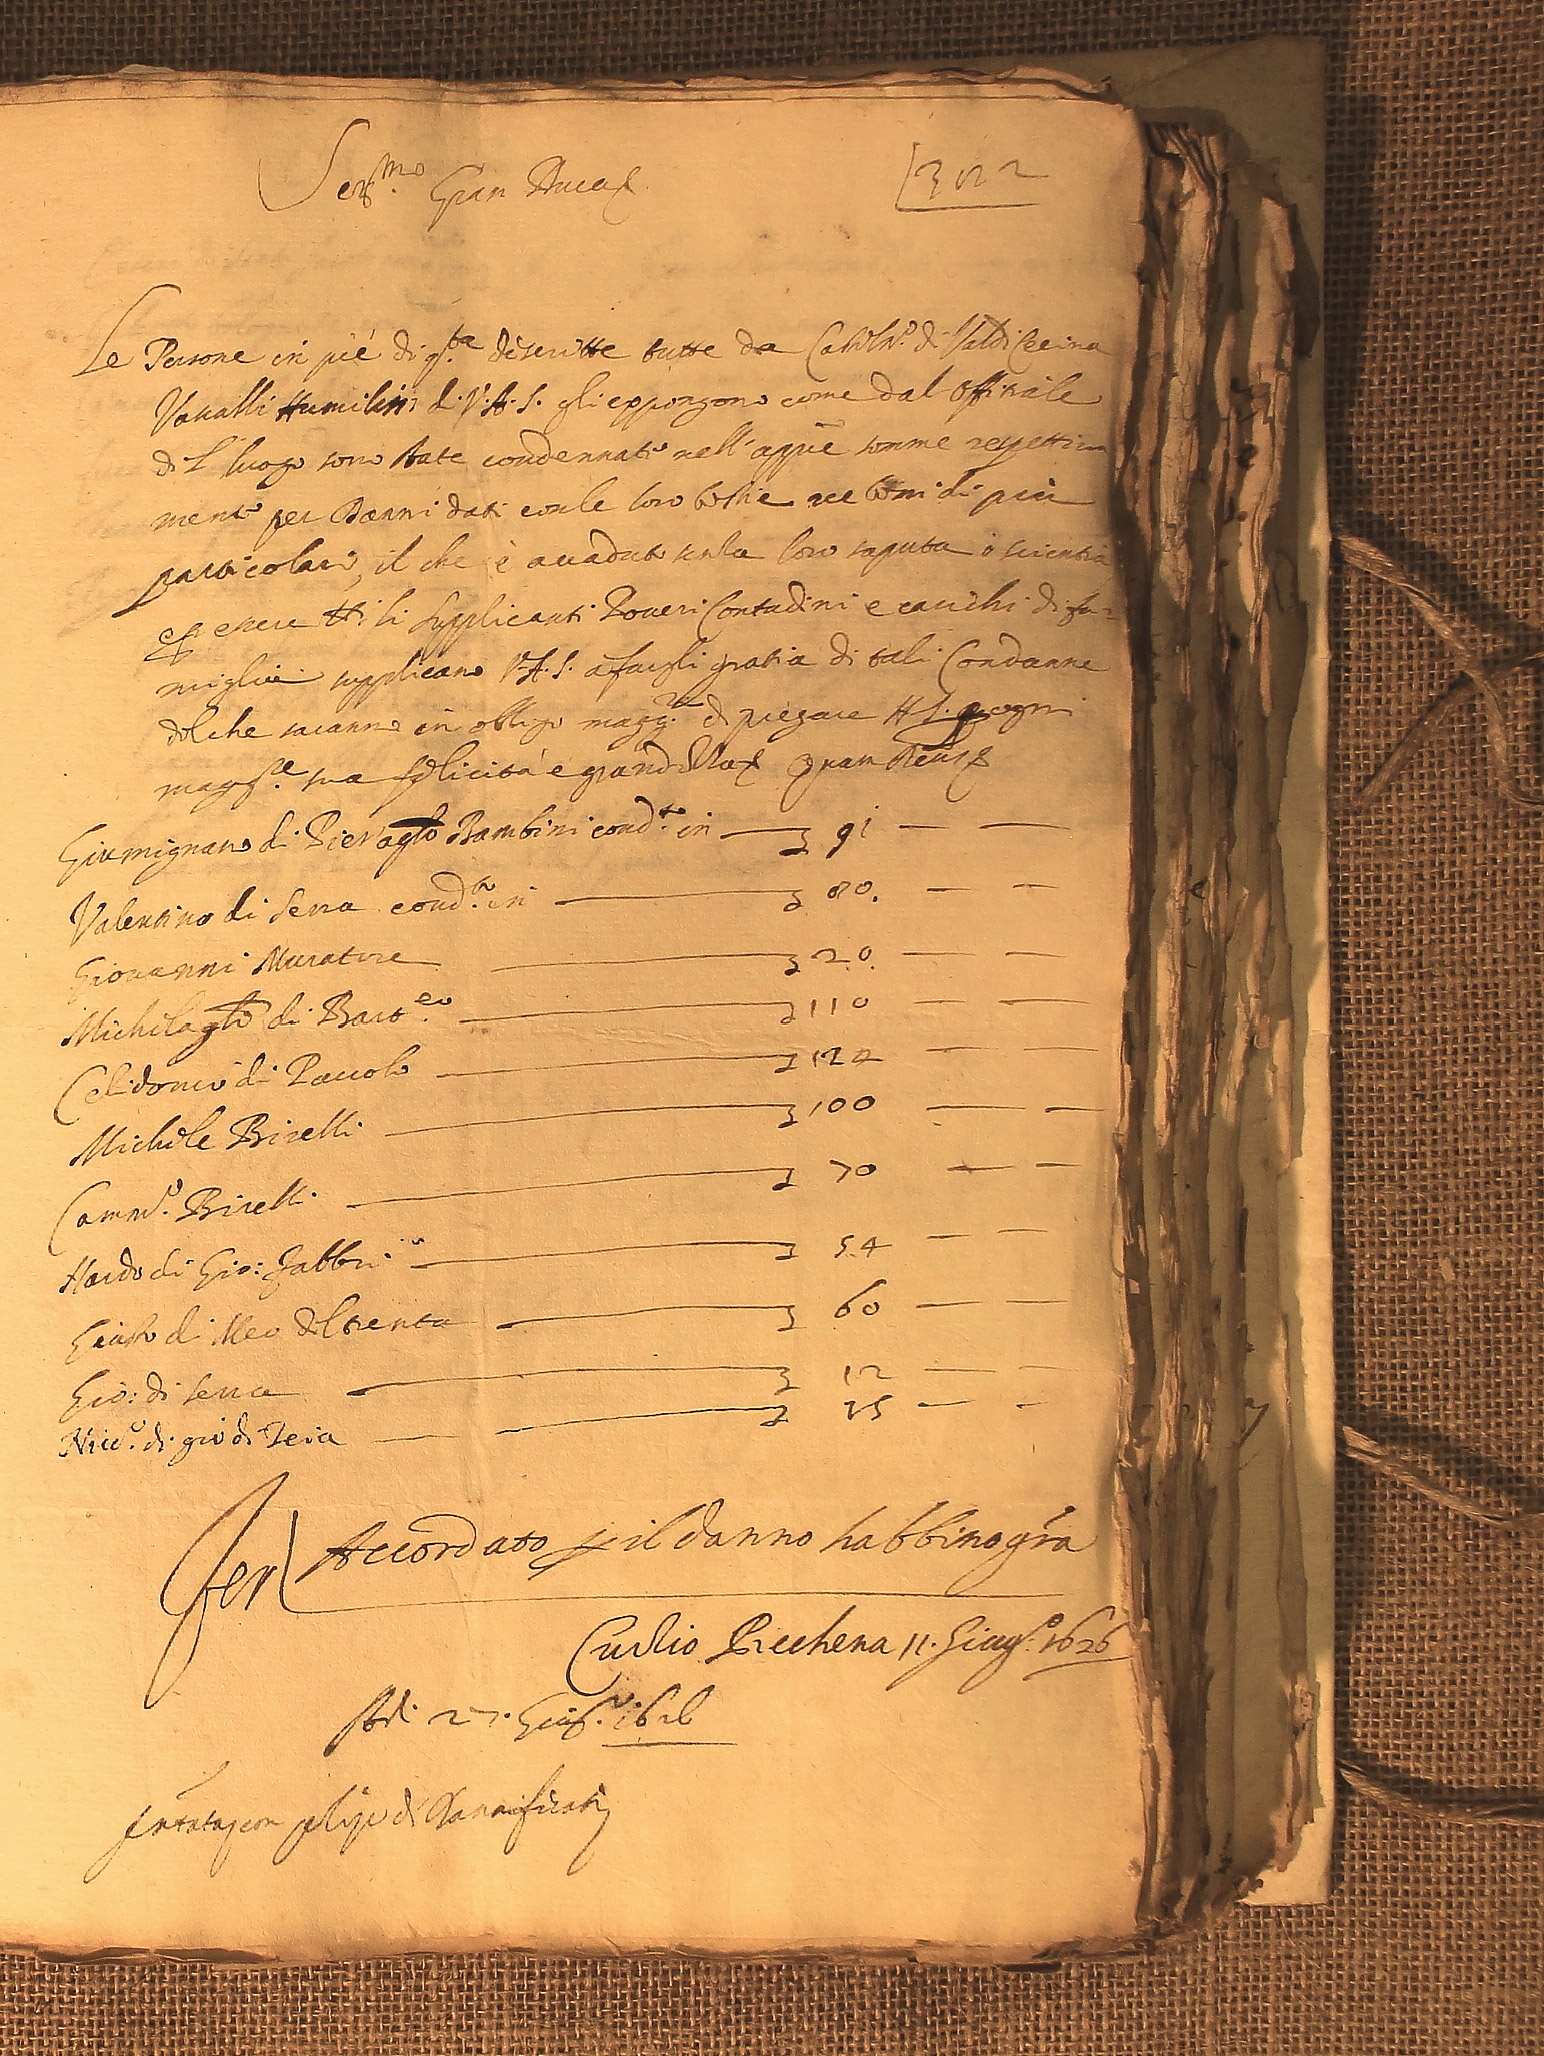 Ser.mo Gran Duca
322
Le Persone in pié di q.ta descritte tutte da Casteln.o di Valdicecina
Vassalli Humiliss.i di V.A.S. gli espongono come dal Offitiale
di d.o luogo sono state condennati nell'appiè somme respettiva
mente per Danni dati con le loro bestie ne beni di più
particolari, il che è accaduto senza loro saputa o scientia
et essere tt.i li supplicanti Poveri Contadini e carichi di fa-
miglia supplicano V.A.S. a fargli gratia di tali Condanne
del che saranno in obligo magg.re di pregare il S. p ogni
magg.re sua felicità e grandezza quam Deus
Giemignano di Pier'agto Bambini cond.to in 91
Valentino di Serra cond.to in 80.
Giovanni Muratore 20.
Michelagto di Bart.eo 110
Celidonio di Paccolo 122
Michele Birelli 100
Camm.o Birelli 70
Nardo di Gio: Fabbri 54
Giusto di Meo del trenta 60
Gio: di Serra 12
Nicc.o di gio di Teia 25
Fer
Accordato p il danno habbino gra
Curtio Picchena 11. Giug.o 1626
Adi 27. Giug.o 1626